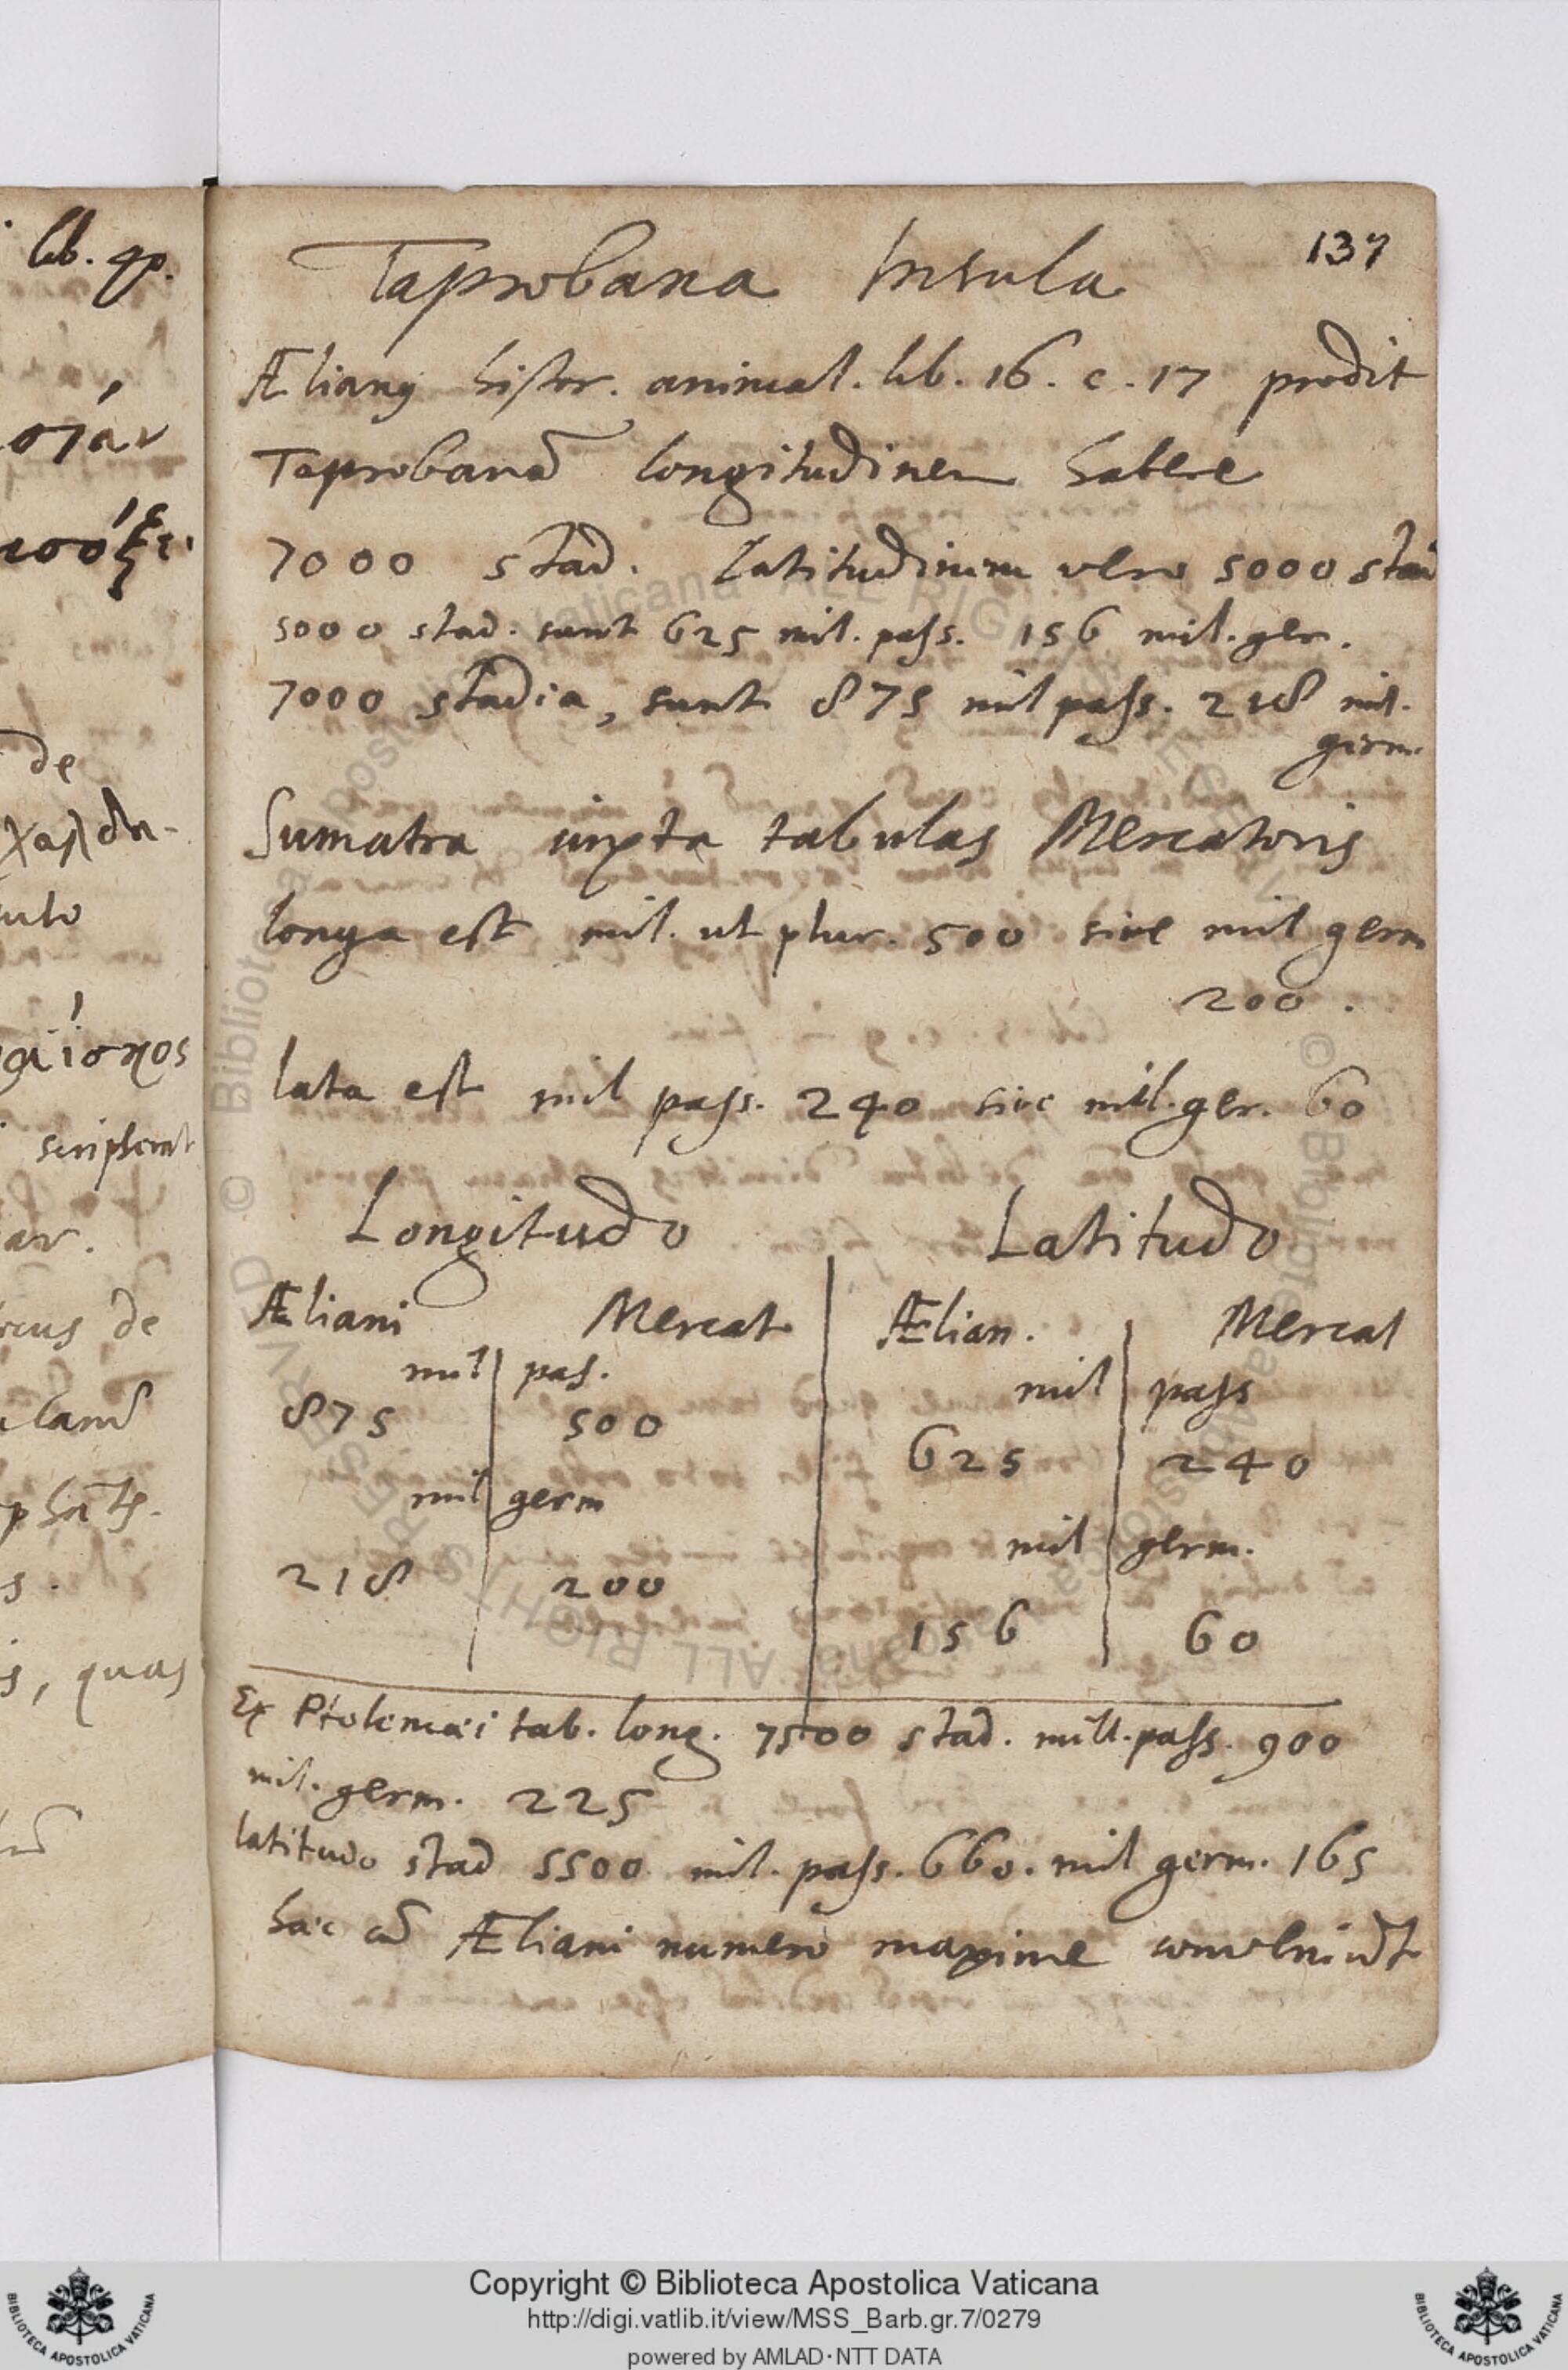 lib. qp.
137
Taprobana Insula
Ælianus histor. animal. lib. 16. c. 17 prodit
Taprobanã longitudinem habere
7000 stad. Latitudinem vero 5000 stad
5000 stad. sunt 625 mil. pass. 156 mil. ger.
7000 stadia, sunt 875 mil pass. 218 mil.
germ.
Sumatra iuxta tabulas Mercatoris
longa est mil. ut plur. 500 sive mil germ
200.
lata est mil pass. 240 sive mil. ger. 60
Longitudo Latitudo
Æliani Mercat Ælian. Mercat
mil pas. mil pass
875 500 625 240
mil germ mil germ.
218 200 156 60
Ex Ptolemæi tab. long. 7500 stad. mill. pass. 900
mil. germ. 225
latitudo stad 5500 mil. pass. 660. mil germ. 165
hæc cũ Æliani numero maxime conveniũt
de
scripserat
, quas
Copyright © Biblioteca Apostolica Vaticana
http://digi.vatlib.it/view/MSS_Barb.gr.7/0279
powered by AMLAD·NTT DATA
BIBLIOTECA APOSTOLICA VATICANA
BIBLIOTECA APOSTOLICA VATICANA